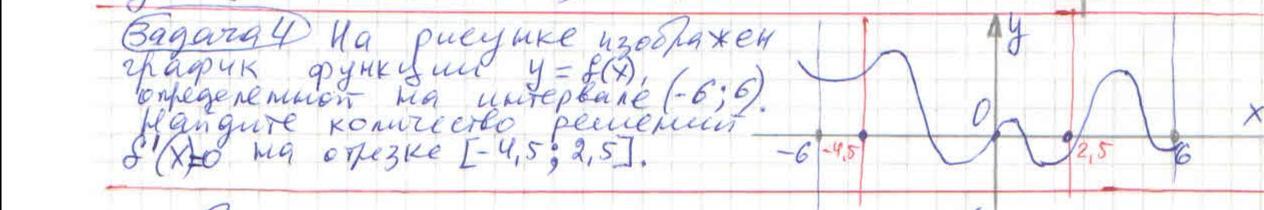 Задача 4 На рисунке изображен
график функции y = f(x),
определенной на интервале (-6; 6).
Найдите количество решений
f'(x)=0 на отрезке [-4,5; 2,5].
y
0
x
-6 -4,5 2,5 6